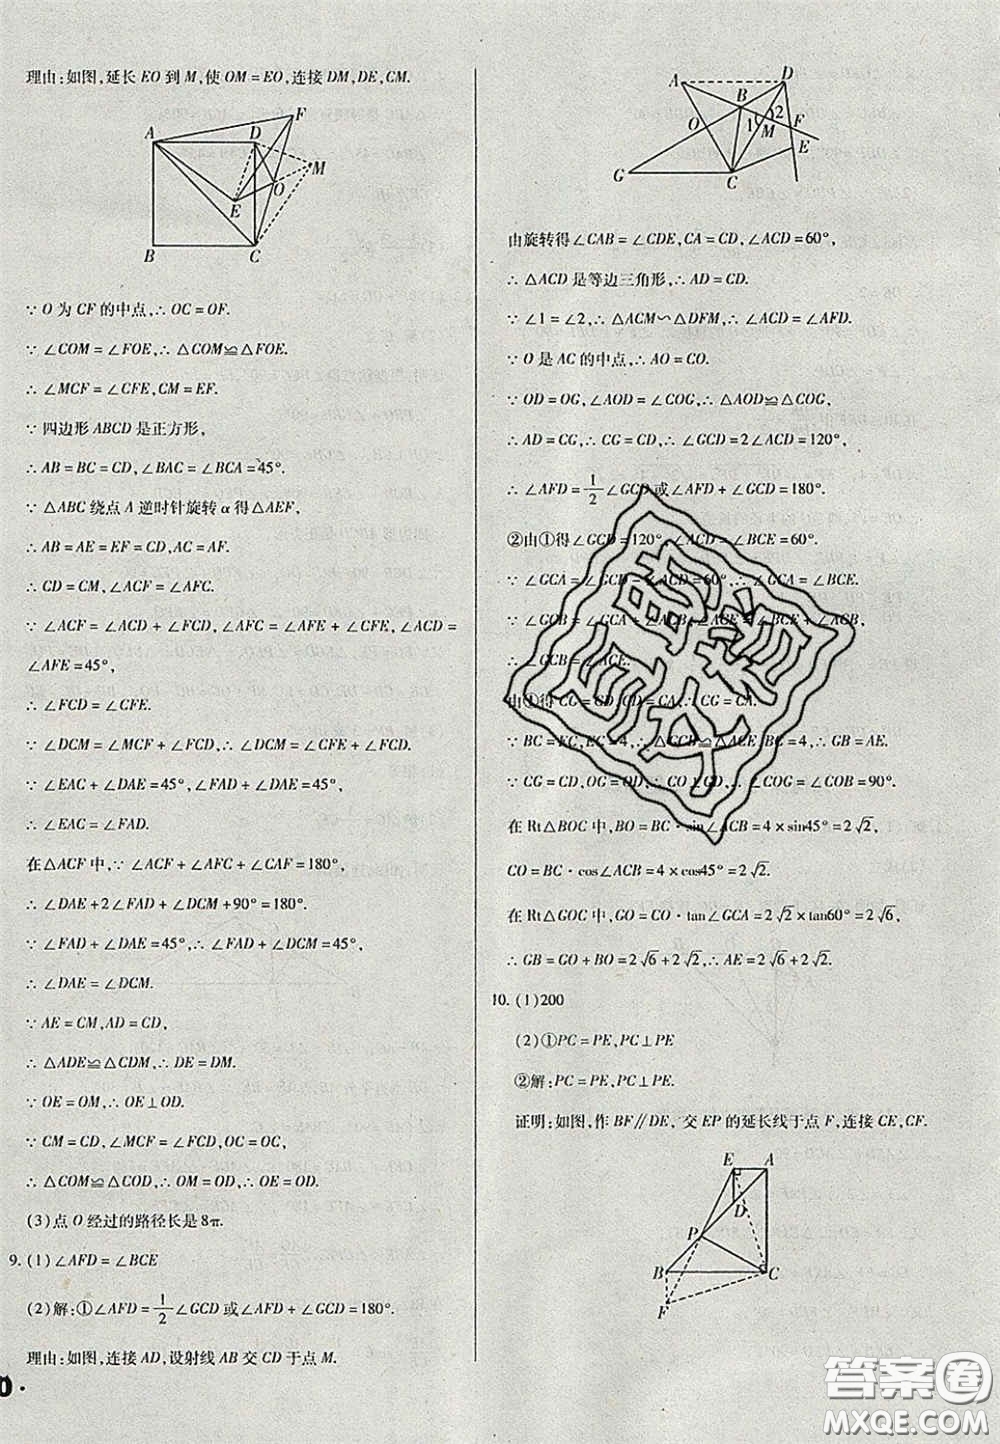 理由:如图,延长 EO 到 M,使 OM=EO,连接 DM,DE,CM.
A
D
F
M
O
E
B
C
∵ O 为 CF 的中点,∴ OC=OF.
∵ ∠COM=∠FOE,∴ △COM≌△FOE.
∴ ∠MCF=∠CFE,CM=EF.
∵ 四边形 ABCD 是正方形,
∴ AB=BC=CD,∠BAC=∠BCA=45°.
∵ △ABC 绕点 A 逆时针旋转 α 得△AEF,
∴ AB=AE=EF=CD,AC=AF.
∴ CD=CM,∠ACF=∠AFC.
∵ ∠ACF=∠ACD+∠FCD,∠AFC=∠AFE+∠CFE,∠ACD=
∠AFE=45°,
∴ ∠FCD=∠CFE.
∵ ∠DCM=∠MCF+∠FCD,∴ ∠DCM=∠CFE+∠FCD.
∵ ∠EAC+∠DAE=45°,∠FAD+∠DAE=45°,
∴ ∠EAC=∠FAD.
在△ACF 中,∵ ∠ACF+∠AFC+∠CAF=180°,
∴ ∠DAE+2∠FAD+∠DCM+90°=180°.
∵ ∠FAD+∠DAE=45°,∴ ∠FAD+∠DCM=45°,
∴ ∠DAE=∠DCM.
∵ AE=CM,AD=CD,
∴ △ADE≌△CDM,∴ DE=DM.
∵ OE=OM,∴ OE⊥OD.
∵ CM=CD,∠MCF=∠FCD,OC=OC,
∴ △COM≌△COD,∴ OM=OD,∴ OE=OD.
(3)点 O 经过的路径长是 8π.
9. (1)∠AFD=∠BCE
(2)解:①∠AFD=1/2∠GCD 或∠AFD+∠GCD=180°.
理由:如图,连接 AD,设射线 AB 交 CD 于点 M.
A
D
B
O
1
2
M
F
E
G
C
由旋转得∠CAB=∠CDE,CA=CD,∠ACD=60°,
∴ △ACD 是等边三角形,∴ AD=CD.
∵ ∠1=∠2,∴ △ACM∽△DFM,∴ ∠ACD=∠AFD.
∵ O 是 AC 的中点,∴ AO=CO.
∵ OD=OG,∠AOD=∠COG,∴ △AOD≌△COG,
∴ AD=CG,∴ CG=CD,∴ ∠GCD=2∠ACD=120°,
∴ ∠AFD=1/2∠GCD 或∠AFD+∠GCD=180°.
②由①得∠GCD=120°,∠ACD=∠BCE=60°.
∵ ∠GCA=∠GCD-∠ACD=60°,∴ ∠GCA=∠BCE.
∵ ∠GCB=∠GCA+∠ACB,∠ACE=∠BCE+∠ACB,
∴ ∠GCB=∠ACE.
由①得 CG=CD,CD=CA,∴ CG=CA.
∵ BC=EC,EC=4,∴ △GCB≌△ACE,BC=4,∴ GB=AE.
∵ CG=CD,OG=OD,∴ CO⊥GD,∴ ∠COG=∠COB=90°.
在 Rt△BOC 中,BO=BC·sin∠ACB=4×sin45°=2√2,
CO=BC·cos∠ACB=4×cos45°=2√2.
在 Rt△GOC 中,GO=CO·tan∠GCA=2√2×tan60°=2√6,
∴ GB=GO+BO=2√6+2√2,∴ AE=2√6+2√2.
10. (1)200
(2)①PC=PE,PC⊥PE
②解:PC=PE,PC⊥PE.
证明:如图,作 BF∥DE,交 EP 的延长线于点 F,连接 CE,CF.
E
A
D
P
B
C
F
0·
答案圈
MXQE.COM